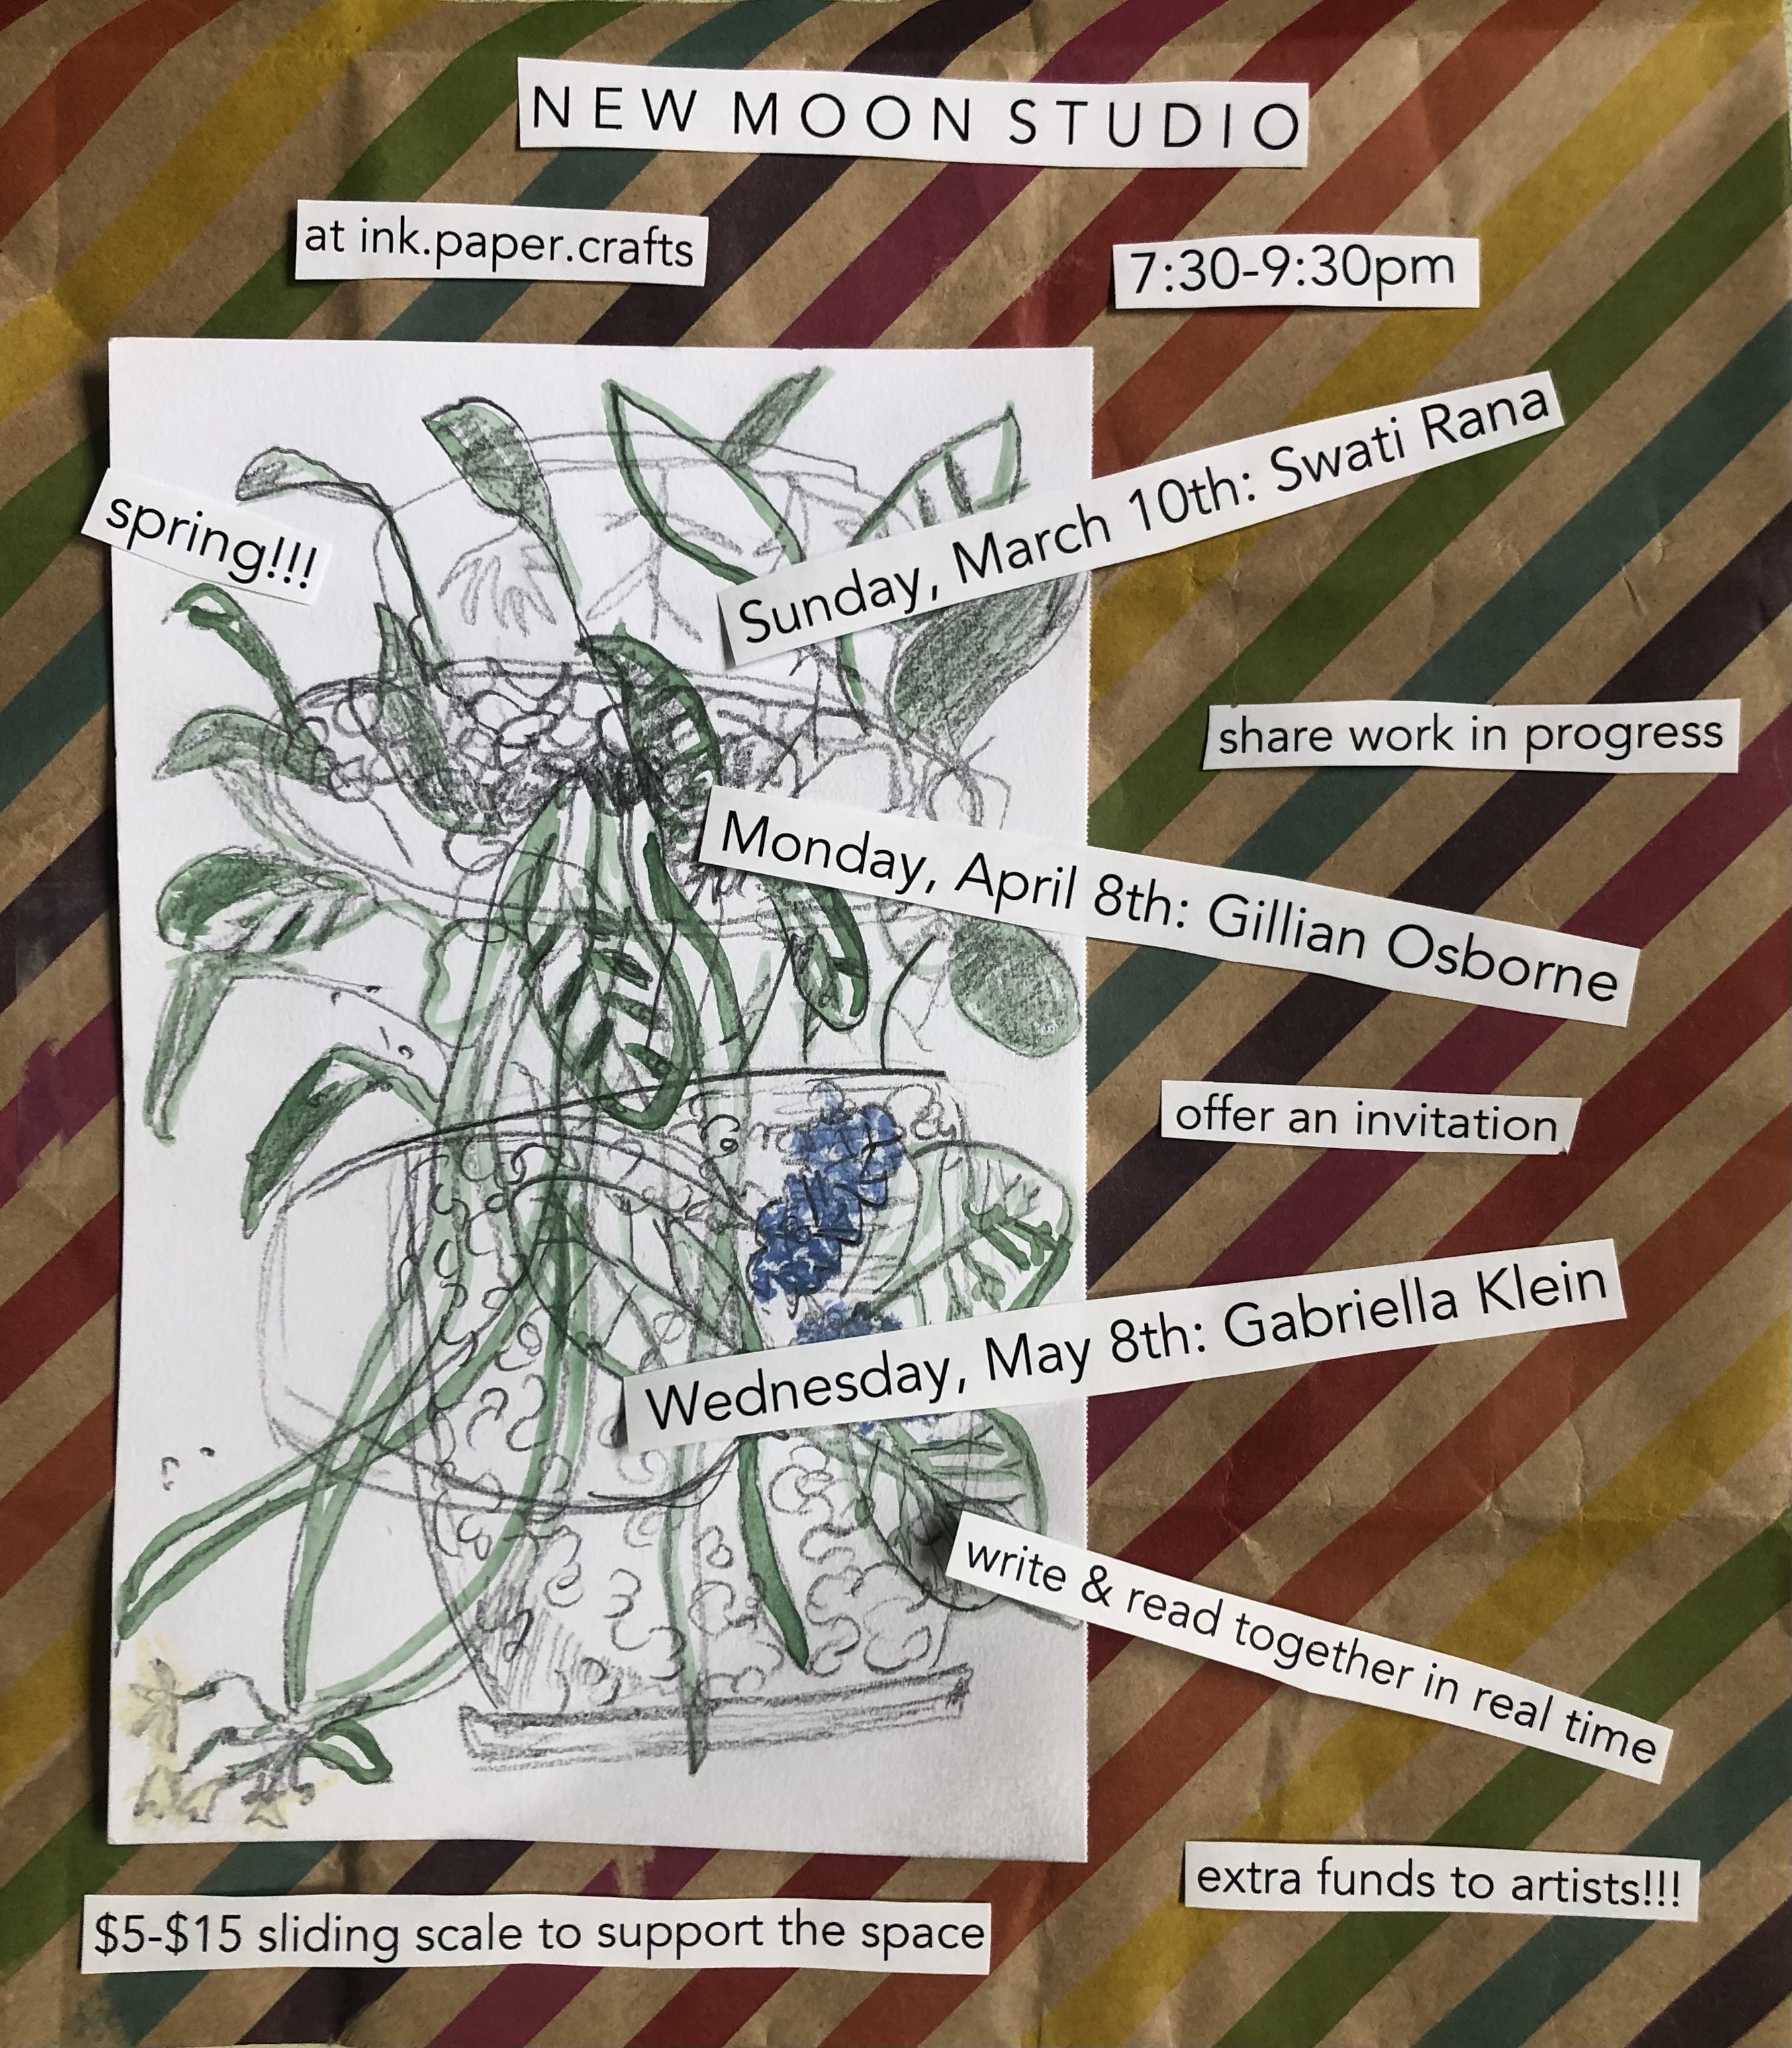 NEW MOON STUDIO
at ink.paper.crafts
7:30-9:30pm
spring!!!
Sunday, March 10th: Swati Rana
share work in progress
Monday, April 8th: Gillian Osborne
offer an invitation
Wednesday, May 8th: Gabriella Klein
write & read together in real time
extra funds to artists!!!
$5-$15 sliding scale to support the space